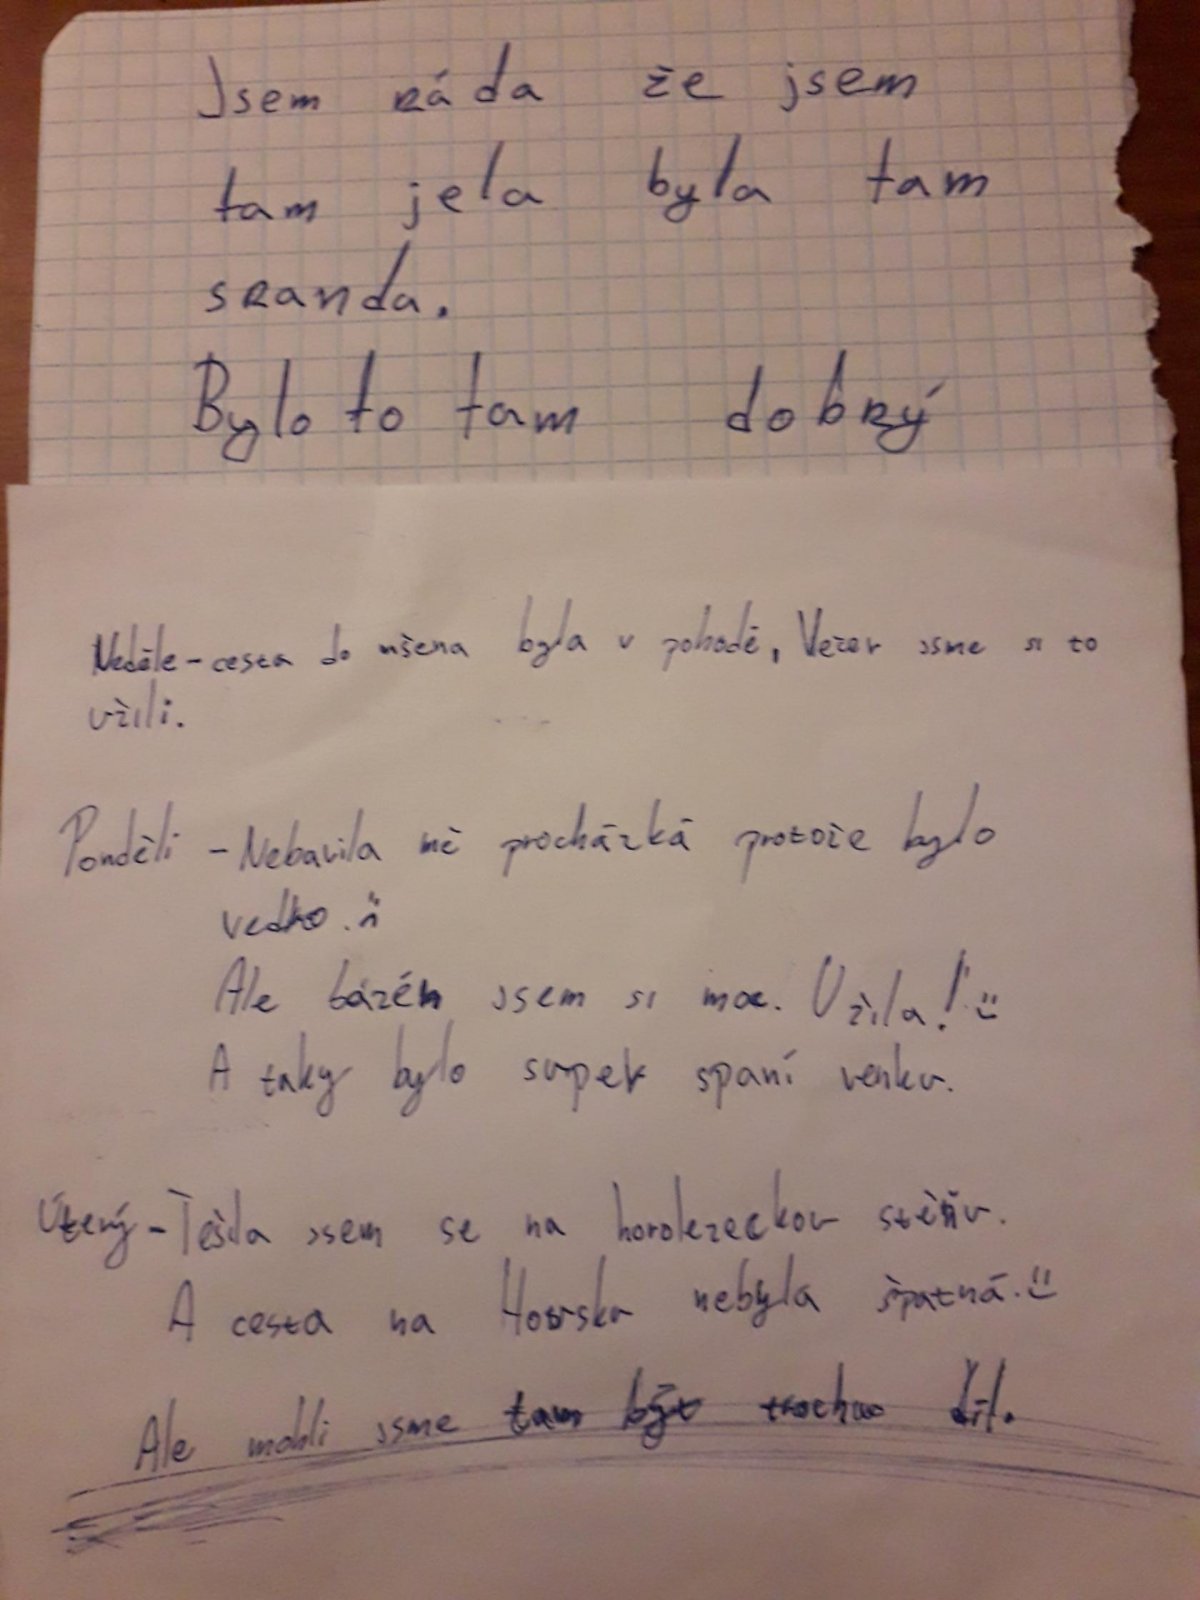 Jsem ráda že jsem
tam jela byla tam
sranda.
Bylo to tam dobrý
Neděle - cesta do mšena byla v pohodě, Večer jsme si to
užili.
Ponděli - Nebavila mě procházká protože bylo
vedko. :(
Ale bázén jsem si moc. Užila! :)
A taky bylo super spaní venku.
Úterý - Těšila jsem se na horolezeckou stěňu.
A cesta na Housku nebyla špatná. :)
Ale mohli jsme tam být trochu dýl.